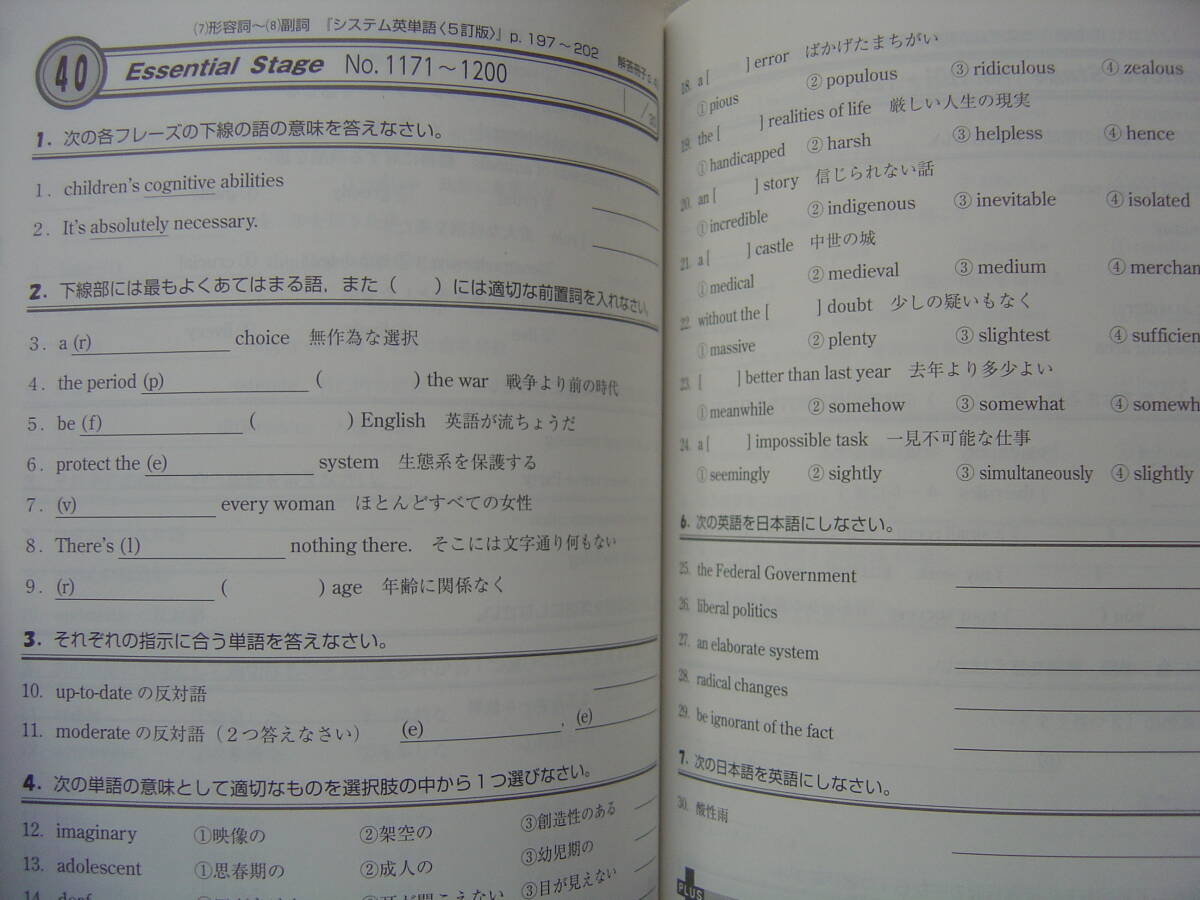 (7)形容詞～(8)副詞 『システム英単語〈5訂版〉』p. 197～202
解答冊子p.
40 Essential Stage No. 1171～1200
1. 次の各フレーズの下線の語の意味を答えなさい。
1. children's cognitive abilities
2. It's absolutely necessary.
2. 下線部には最もよくあてはまる語，また（　）には適切な前置詞を入れなさい。
3. a (r) choice 無作為な選択
4. the period (p) ( ) the war 戦争より前の時代
5. be (f) ( ) English 英語が流ちょうだ
6. protect the (e) system 生態系を保護する
7. (v) every woman ほとんどすべての女性
8. There's (l) nothing there. そこには文字通り何もない
9. (r) ( ) age 年齢に関係なく
3. それぞれの指示に合う単語を答えなさい。
10. up-to-date の反対語
11. moderate の反対語（２つ答えなさい） (e) , (e)
4. 次の単語の意味として適切なものを選択肢の中から１つ選びなさい。
12. imaginary ①映像の ②架空の ③創造性のある
13. adolescent ①思春期の ②成人の ③幼児期の
14. deaf ③目が見えない
18. a [ ] error ばかげたまちがい
①pious ② populous ③ ridiculous ④ zealous
19. the [ ] realities of life 厳しい人生の現実
①handicapped ② harsh ③ helpless ④ hence
20. an [ ] story 信じられない話
①incredible ② indigenous ③ inevitable ④ isolated
21. a [ ] castle 中世の城
①medical ② medieval ③ medium ④ merchan
22. without the [ ] doubt 少しの疑いもなく
①massive ② plenty ③ slightest ④ sufficien
23. [ ] better than last year 去年より多少よい
①meanwhile ② somehow ③ somewhat ④ somewh
24. a [ ] impossible task 一見不可能な仕事
①seemingly ② sightly ③ simultaneously ④ slightly
6. 次の英語を日本語にしなさい。
25. the Federal Government
26. liberal politics
27. an elaborate system
28. radical changes
29. be ignorant of the fact
7. 次の日本語を英語にしなさい。
30. 酸性雨
PLUS